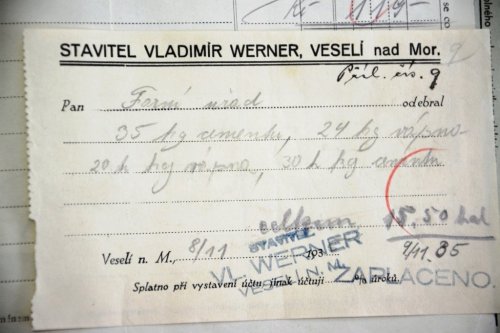 119-
STAVITEL VLADIMÍR WERNER, VESELÍ nad Mor.
Příl. čís. 9
Pan Farní úřad odebral
35 kg cementu, 24 kg vápna
20 kg vápna, 30 kg cementu
celkem 15.50 hal
Veselí n. M., 8/11 193
9/11.35
STAVITEL
VL. WERNER
VESELÍ N. M.
ZAPLACENO.
Splatno při vystavení účtu jinak účtuji % úroků.